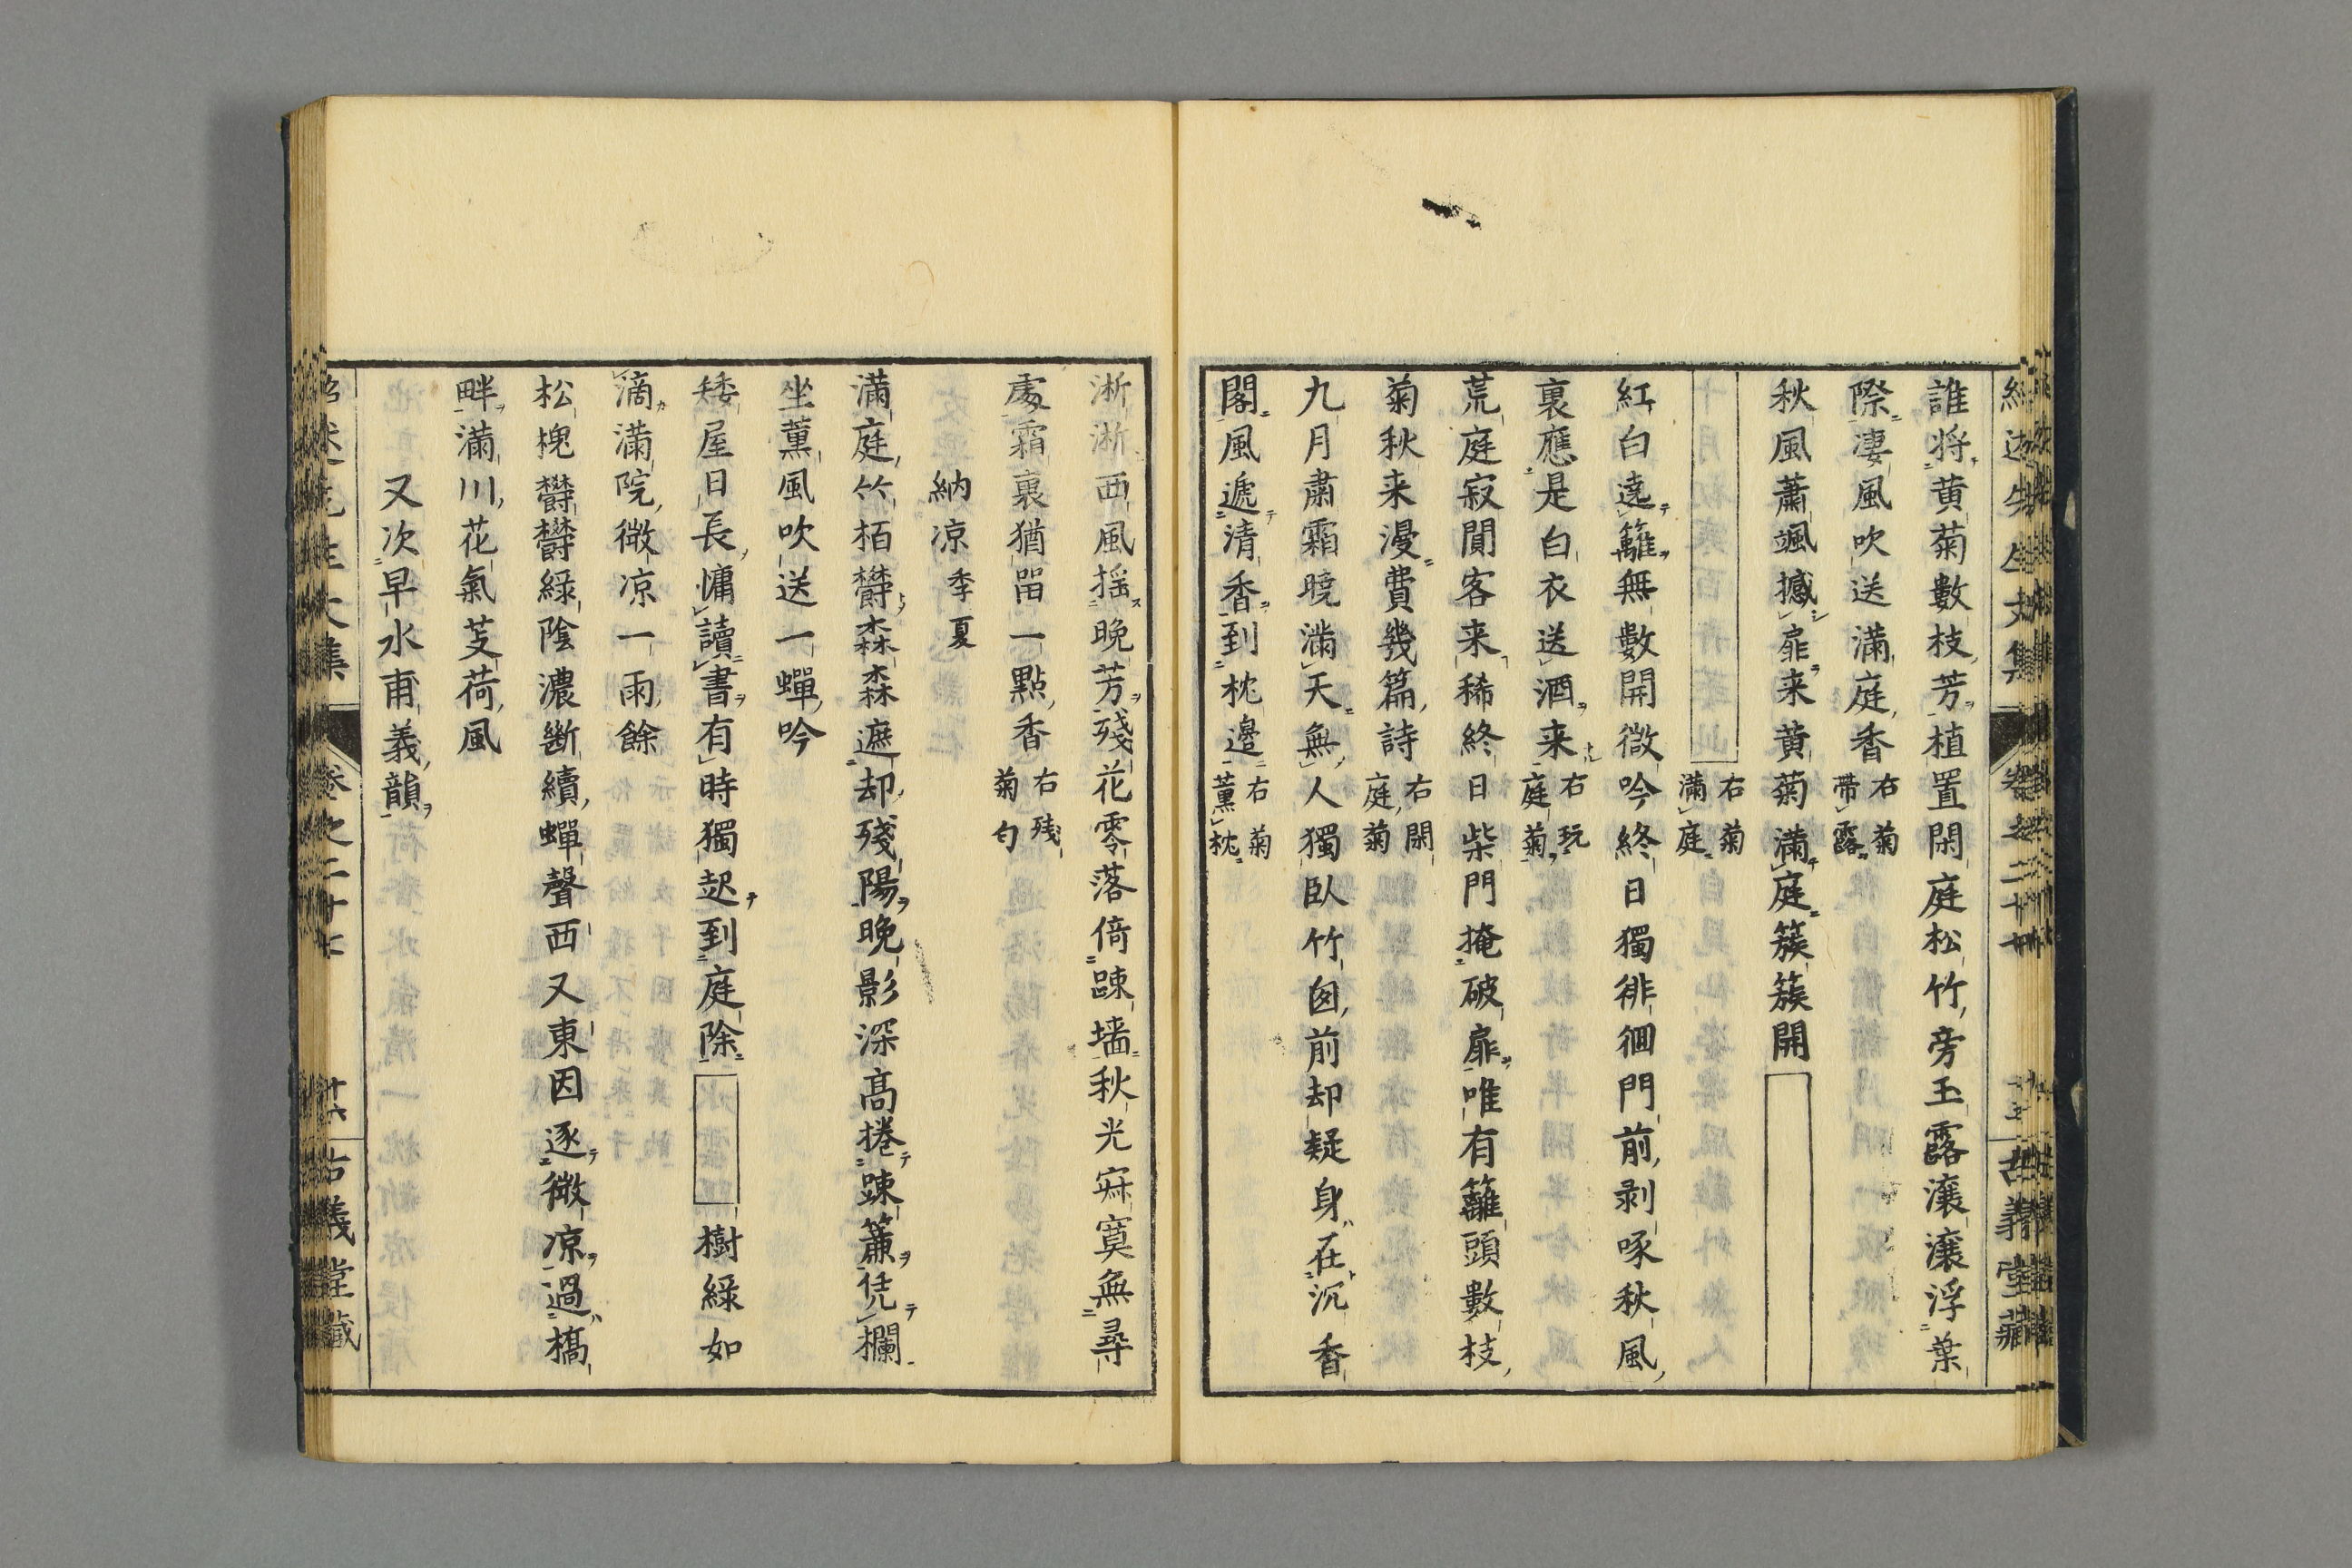 誰将黄菊數枝芳植置閑庭松竹旁玉露瀼瀼浮葉
際淒風吹送滿庭香右菊帯露
秋風蕭颯撼扉来黄菊滿庭簇簇開
右菊滿庭
紅白遶籬無數開微吟終日獨徘徊門前剥啄秋風
裏應是白衣送酒来右玩庭菊
荒庭寂閴客来稀終日柴門掩破扉唯有籬頭數枝
菊秋来漫費幾篇詩右閑庭菊
九月肅霜曉滿天無人獨臥竹囱前却疑身在沉香
閣風遞清香到枕邊右菊薫枕
淅淅西風揺晩芳殘花零落倚踈墙秋光寂寞無尋
處霜裏猶畱一點香右残菊匂
納凉季夏
滿庭竹栢欝森森遮却殘陽晩影深高捲踈簾凭欄
坐薫風吹送一蟬吟
矮屋日長慵讀書有時獨起到庭除樹綠如
滴滿院微凉一雨餘
松槐欝欝綠陰濃斷續蟬聲西又東因逐微凉過橋
畔滿川花氣芰荷風
又次早水甫義韻
卷之二十七
十六
古義堂藏